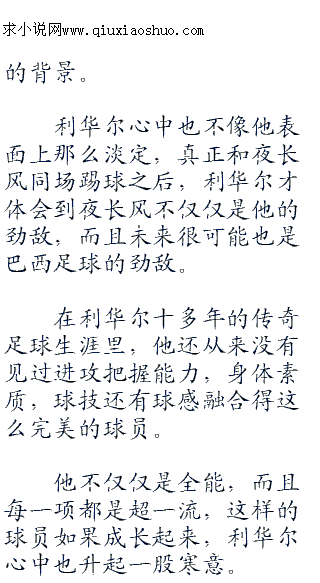 求小说网www.qiuxiaoshuo.com
的背景。
利华尔心中也不像他表
面上那么淡定，真正和夜长
风同场踢球之后，利华尔才
体会到夜长风不仅仅是他的
劲敌，而且未来很可能也是
巴西足球的劲敌。
在利华尔十多年的传奇
足球生涯里，他还从来没有
见过进攻把握能力，身体素
质，球技还有球感融合得这
么完美的球员。
他不仅仅是全能，而且
每一项都是超一流，这样的
球员如果成长起来，利华尔
心中也升起一股寒意。